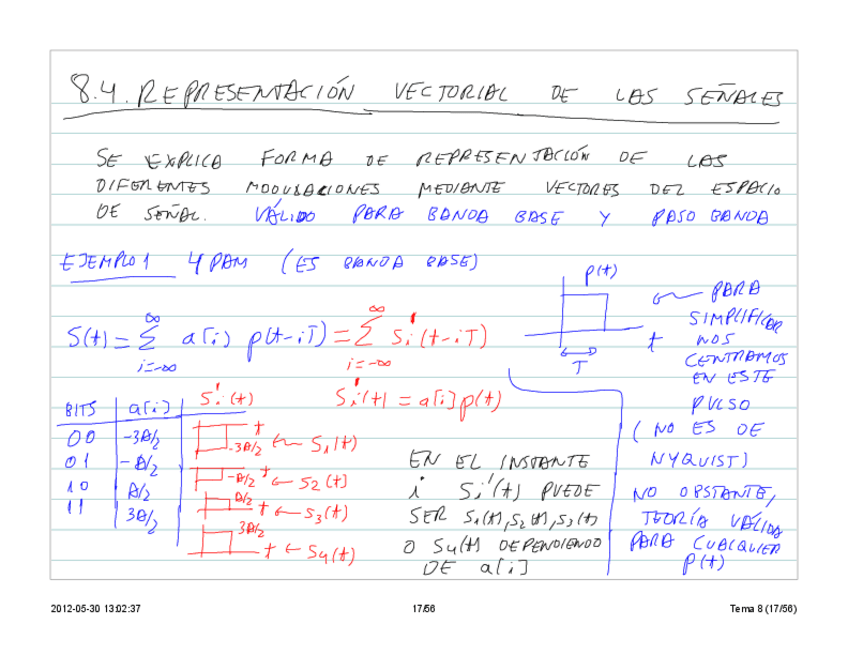 8.4. REPRESENTACIÓN VECTORIAL DE LAS SEÑALES
SE EXPLICA FORMA DE REPRESENTACIÓN DE LAS
DIFERENTES MODULACIONES MEDIANTE VECTORES DEL ESPACIO
DE SEÑAL. VÁLIDO PARA BANDA BASE Y PASO BANDA
EJEMPLO 1 4 PAM (ES BANDA BASE)
p(t)
t
T
S(t) = ∑ a[i] p(t-iT) = ∑ Si'(t-iT)
i=-∞ ∞ i=-∞ ∞
Si'(t) = a[i] p(t)
PARA
SIMPLIFICAR
NOS
CENTRAMOS
EN ESTE
PULSO
(NO ES DE
NYQUIST)
NO OBSTANTE,
TEORÍA VÁLIDA
PARA CUALQUIER
p(t)
BITS a[i] Si'(t)
00 -3A/2 t -3A/2 ← S1(t)
01 -A/2 t -A/2 ← S2(t)
10 A/2 A/2 t ← S3(t)
11 3A/2 3A/2 t ← S4(t)
EN EL INSTANTE
i Si'(t) PUEDE
SER S1(t), S2(t), S3(t)
O S4(t) DEPENDIENDO
DE a[i]
2012-05-30 13:02:37 17/56 Tema 8 (17/56)